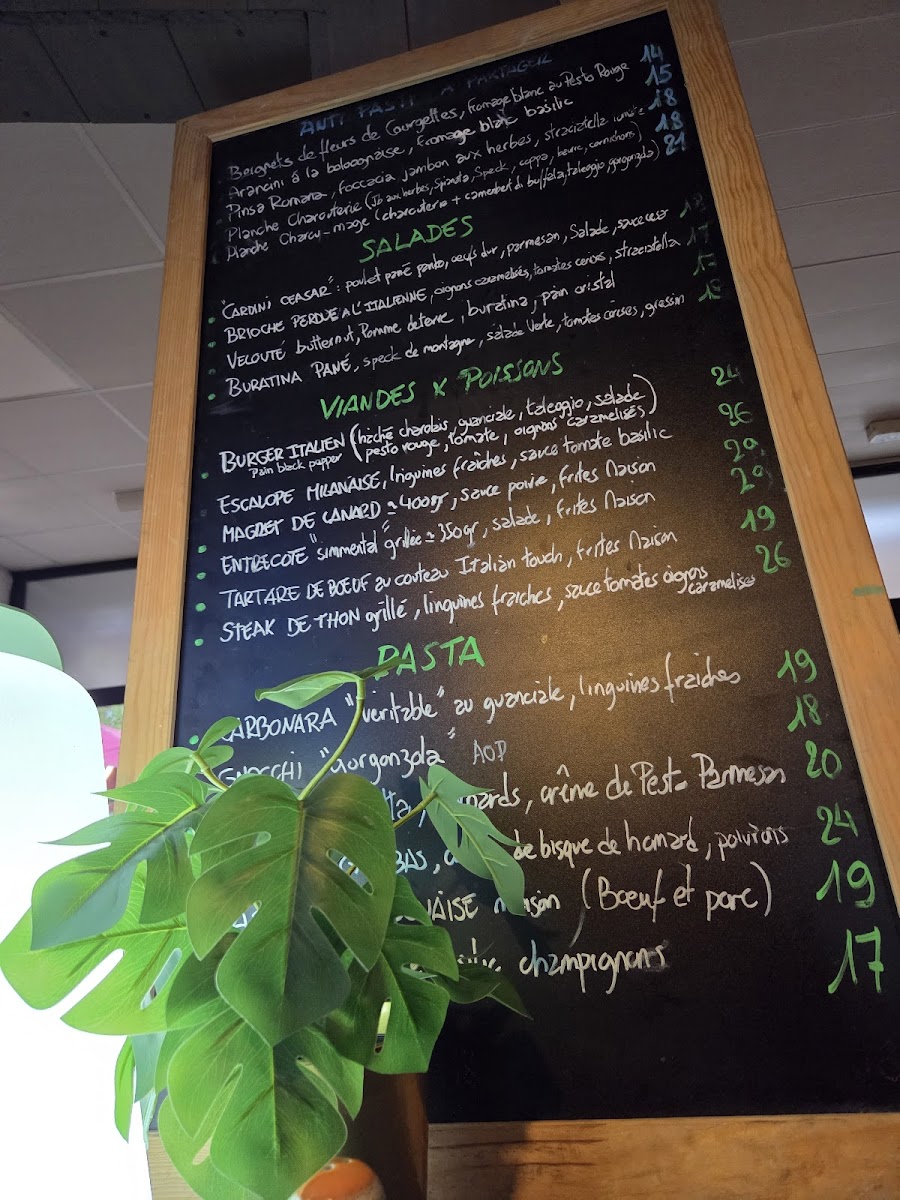 ANTI PASTI A PARTAGER
Beignets de fleurs de Courgettes, fromage blanc au Pesto Rouge 14
Arancini á la bolognaise, fromage blanc basilic 15
Pinsa Romana, foccacia jambon aux herbes, straciatella 18
Planche Charcuterie (Jb aux herbes, Spianata, Speck, coppa, beurre, cornichons) 18
Planche Charcu-mage (charcuterie + camembert di buffala, taleggio, gorgonzola) 21
SALADES
"CARDINI CEASAR": poulet pané panko, oeufs dur, parmesan, Salade, sauce cesar 18
BRIOCHE PERDUE A L'ITALIENNE, oignons caramelisés, tomates cerises, straciatella 17
VELOUTÉ butternut, Pomme de terre, buratina, pain cristal
BURATINA PANÉ, speck de montagne, salade verte, tomates cerises, gressin
VIANDES X POISSONS
BURGER ITALIEN (haché charolais, guanciale, taleggio, salade) 24
Pain black pepper pesto rouge, tomate, oignons caramelisés
ESCALOPE MILANAISE, linguines fraîches, sauce tomate basilic 26
MAGRET DE CANARD ≃ 400gr, sauce poivre, frites Maison 29
ENTRECOTE "simmental" grillée ≃ 350gr, salade, frites Maison 29
TARTARE DE BŒUF au couteau Italian touch, frites Maison 19
STEAK DE THON grillé, linguines fraiches, sauce tomates oignons 26
caramelises
PASTA
CARBONARA "veritable" au guanciale, linguines fraiches 19
GNOCCHI "Gorgonzola" AOP 18
crème de Pesto Parmesan 20
de bisque de homard, poivrons 24
maison (Bœuf et porc) 19
champignons 17